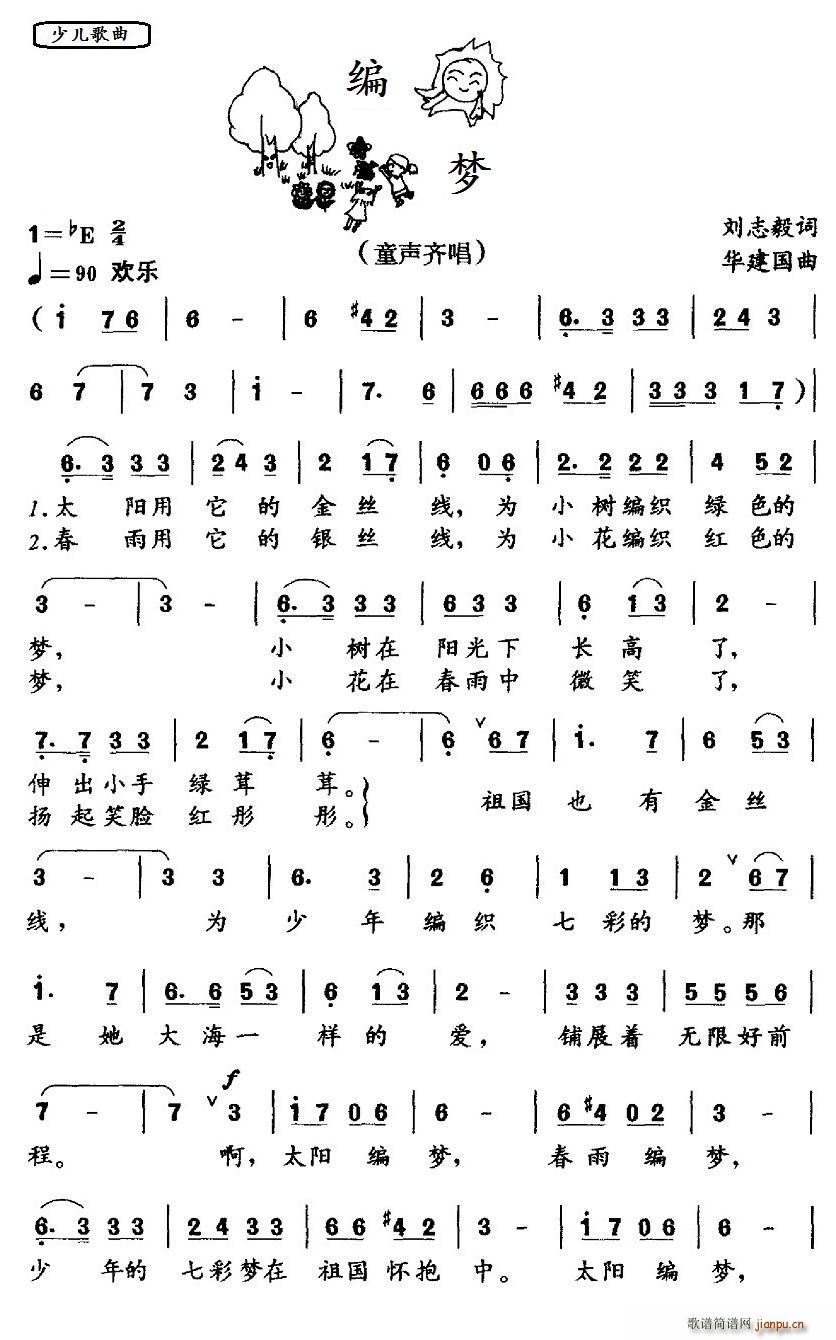 少儿歌曲
编
梦
1=♭E 2/4
♩=90 欢乐
(童声齐唱)
刘志毅词
华建国曲
( i 7 6 | 6 - | 6 #4 2 | 3 - | 6. 3 3 3 | 2 4 3 |
6 7 | 7 3 | i - | 7. 6 | 6 6 6 #4 2 | 3 3 3 1 7 ) |
6. 3 3 3 | 2 4 3 | 2 1 7 | 6 0 6 | 2. 2 2 2 | 4 5 2 |
1.太 阳用 它 的 金 丝 线, 为 小 树编织 绿 色的
2.春 雨用 它 的 银 丝 线, 为 小 花编织 红 色的
3 - | 3 - | 6. 3 3 3 | 6 3 3 | 6 1 3 | 2 - |
梦, 小 树在 阳光下 长 高 了,
梦, 小 花在 春雨中 微 笑 了,
7. 7 3 3 | 2 1 7 | 6 - | 6 ∨ 6 7 | i. 7 | 6 5 3 |
伸 出小手 绿 茸 茸。 祖国 也 有 金 丝
扬 起笑脸 红 彤 彤。
3 - | 3 3 | 6. 3 | 2 6 | 1 1 3 | 2 ∨ 6 7 |
线, 为 少 年 编 织 七 彩的 梦。那
i. 7 | 6. 6 5 3 | 6 1 3 | 2 - | 3 3 3 | 5 5 5 6 |
是 她 大 海一 样 的 爱, 铺展着 无限好前
f
7 - | 7 ∨ 3 | i 7 0 6 | 6 - | 6 #4 0 2 | 3 - |
程。 啊, 太阳 编 梦, 春雨 编 梦,
6. 3 3 3 | 2 4 3 3 | 6 6 #4 2 | 3 - | i 7 0 6 | 6 - |
少 年的 七彩梦在 祖国怀抱 中。 太阳 编 梦,
歌谱简谱网
jianpu.cn